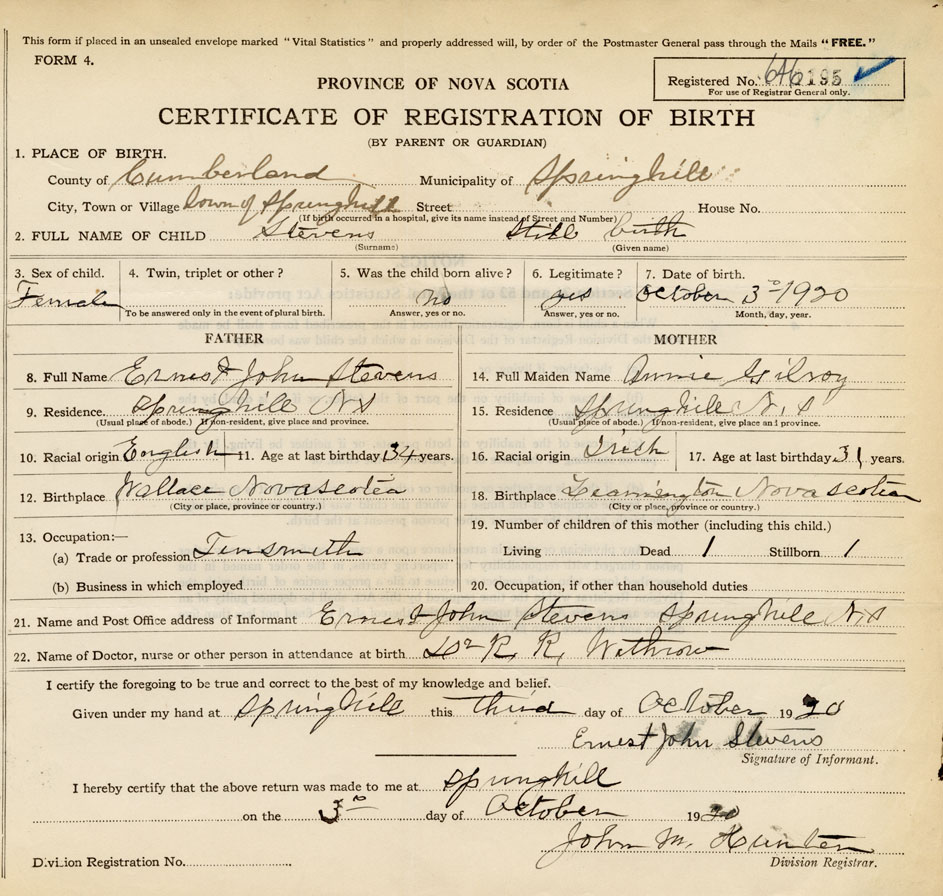 This form if placed in an unsealed envelope marked "Vital Statistics" and properly addressed will, by order of the Postmaster General pass through the Mails "FREE."
FORM 4.
Registered No. 195
For use of Registrar General only.
PROVINCE OF NOVA SCOTIA
CERTIFICATE OF REGISTRATION OF BIRTH
(BY PARENT OR GUARDIAN)
1. PLACE OF BIRTH.
County of Cumberland Municipality of Springhill
City, Town or Village Town of Springhill Street House No.
(If birth occurred in a hospital, give its name instead of Street and Number)
2. FULL NAME OF CHILD Stevens Still birth
(Surname) (Given name)
3. Sex of child. 4. Twin, triplet or other? 5. Was the child born alive? 6. Legitimate? 7. Date of birth.
Female no yes October 3rd 1920
To be answered only in the event of plural birth. Answer, yes or no. Answer, yes or no. Month, day, year.
FATHER MOTHER
8. Full Name Ernest John Stevens 14. Full Maiden Name Annie Gilroy
9. Residence. Springhill NS 15. Residence Springhill N.S
(Usual place of abode.) If non-resident, give place and province. (Usual place of abode.) If non-resident, give place and province.
10. Racial origin English 11. Age at last birthday 34 years. 16. Racial origin Irish 17. Age at last birthday 31 years.
12. Birthplace Wallace Novascotia 18. Birthplace Leamington Nova scotia
(City or place, province or country.) (City or place, province or country.)
13. Occupation:— 19. Number of children of this mother (including this child.)
(a) Trade or profession Tinsmith Living Dead 1 Stillborn 1
(b) Business in which employed 20. Occupation, if other than household duties
21. Name and Post Office address of Informant Ernest John Stevens Springhill N.S
22. Name of Doctor, nurse or other person in attendance at birth Dr R. R. Withrow
I certify the foregoing to be true and correct to the best of my knowledge and belief.
Given under my hand at Springhill this third day of October 1920
Ernest John Stevens
Signature of Informant.
I hereby certify that the above return was made to me at Springhill
on the 3rd day of October 1920
John M. Hunter
Division Registrar.
Division Registration No.